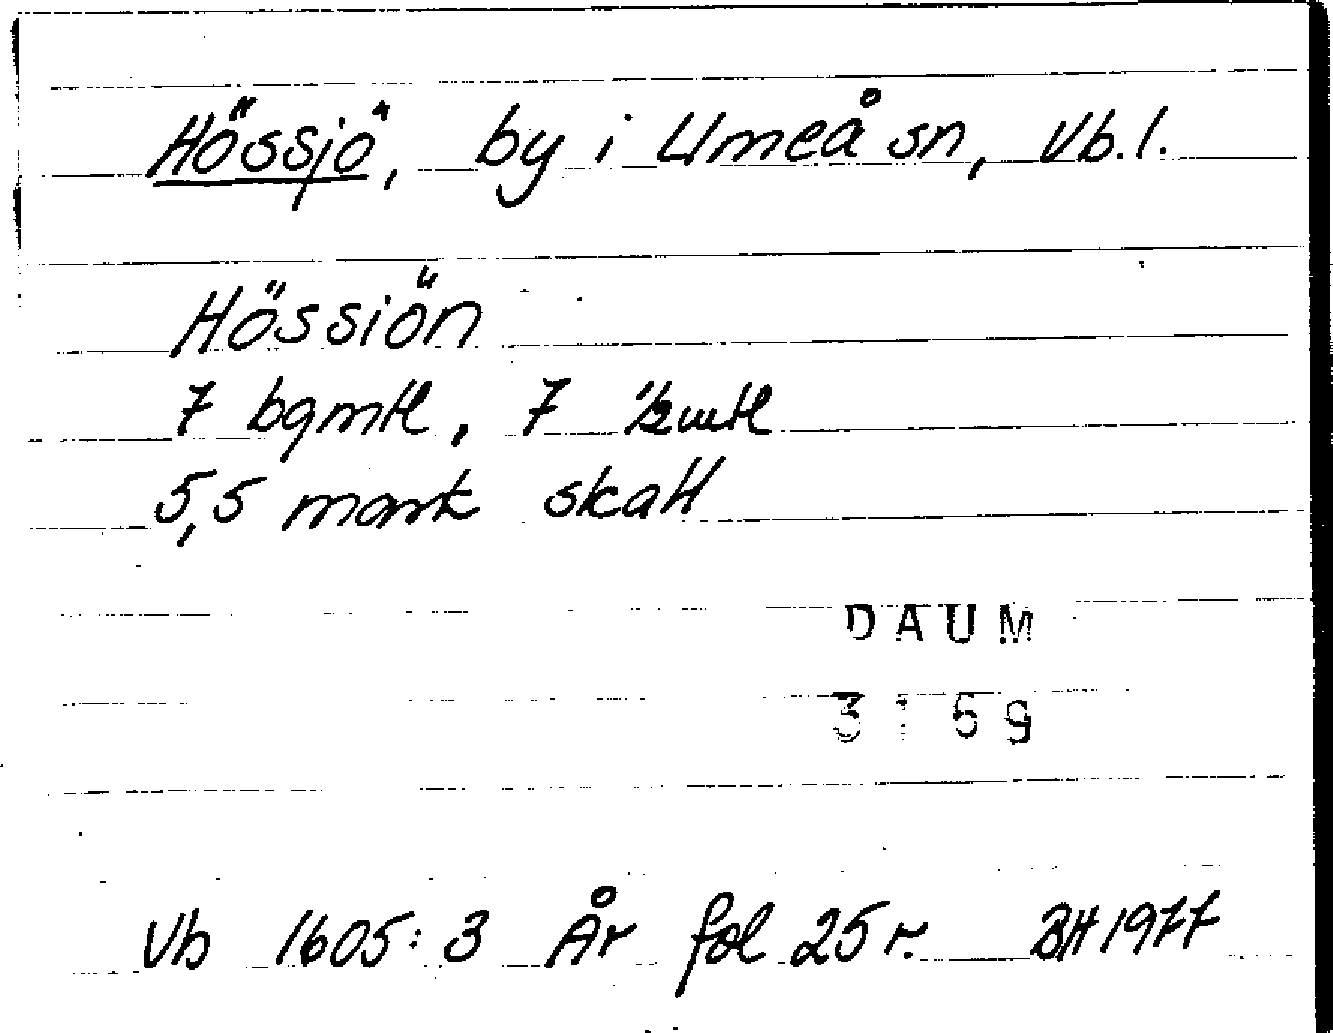 Hössjö, by i Umeå sn, Vb.l.
Hössiön
7 bgmtl, 7 ½mtl
5,5 mark skatt
DAUM
3159
Vb 1605:3 År fol 25 r. BH 1977